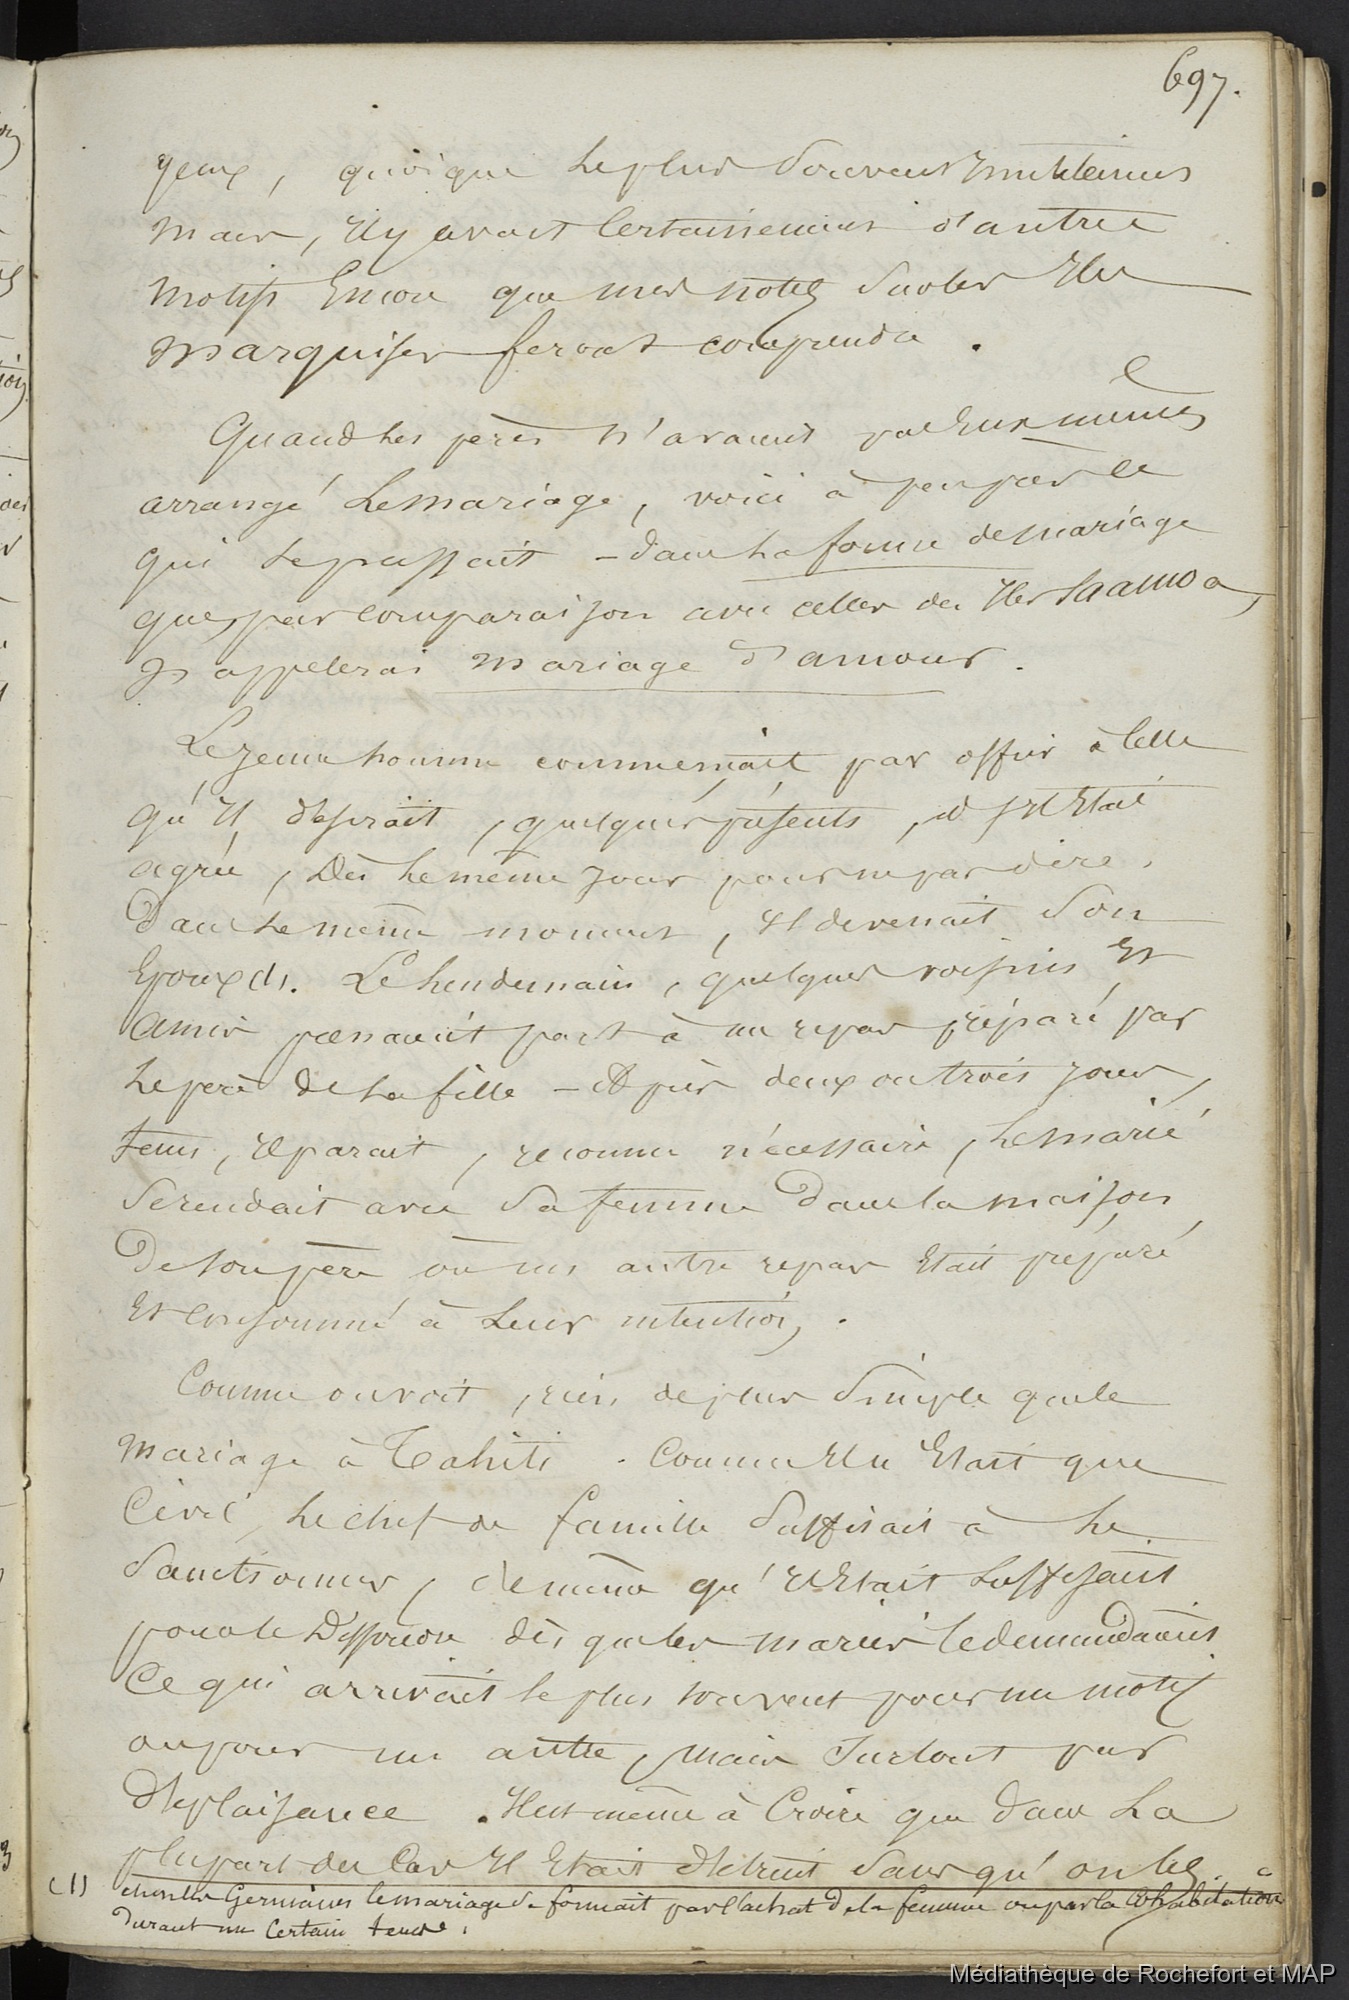 697.
yeux, quoique le plus souvent
mais, il y avait certainement d'autres
motifs encore que mes notes sur les Iles
marquises feront comprendre.
Quand les pères n'avaient pas eux mêmes
arrangé le mariage, voici à peu près ce
qui se passait – dans la forme de mariage
que, par comparaison avec celles des Iles hamoa,
J'appelerai mariage d'amour.
Le jeune homme commençait par offrir à celle
qu'il désirait, quelques présents, et s'il était
agréé, Dès le même jour pour ne pas dire,
Dans le même moment, il devenait son
Epoux (1). Le lendemain, quelques voisins et
amis prenaient part à un repas préparé par
le père de la fille – Après deux ou trois jours,
tems, il parait, reconnu nécessaire, le marié
se rendait avec sa femme dans la maison
De son père où un autre repas était préparé
et consommé à leur intention.
Comme on voit, rien de plus simple que le
mariage à Tahiti. Comme il n'était que
Civil, le chef de famille suffisait à le
sanctionner, de même qu'il était suffisant
pour le dissoudre dès que les mariés le demandaient
Ce qui arrivait le plus souvent pour un motif
ou pour un autre, mais surtout par
déplaisance. Il est même à croire que dans la
plupart des cas il était détruit sans qu'on les
(1) chez les Germains le mariage se formait par l'achat de la femme ou par la cohabitation
durant un certain tems.
Médiathèque de Rochefort et MAP